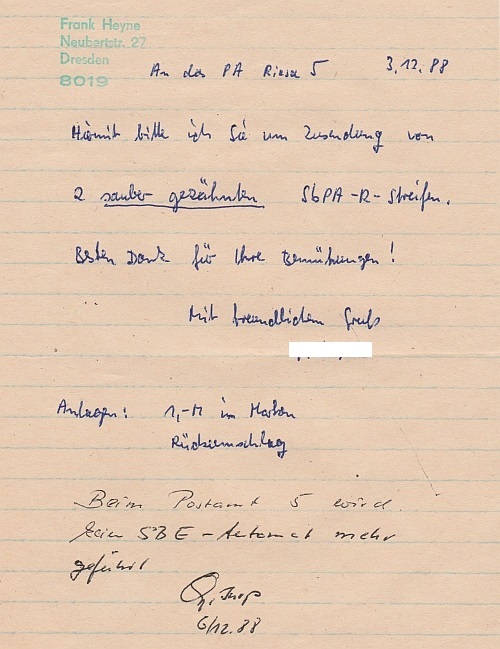 Frank Heyne
Neubertstr. 27
Dresden
8019
An das PA Riesa 5 3.12.88
Hiermit bitte ich Sie um Zusendung von
2 sauber gezähnten SbPA-R-Streifen.
Besten Dank für Ihre Bemühungen!
Mit freundlichem Gruß
Anlagen: 1,-M in Marken
Rückumschlag
Beim Postamt 5 wird
kein SBE-Automat mehr
geführt
6/12.88